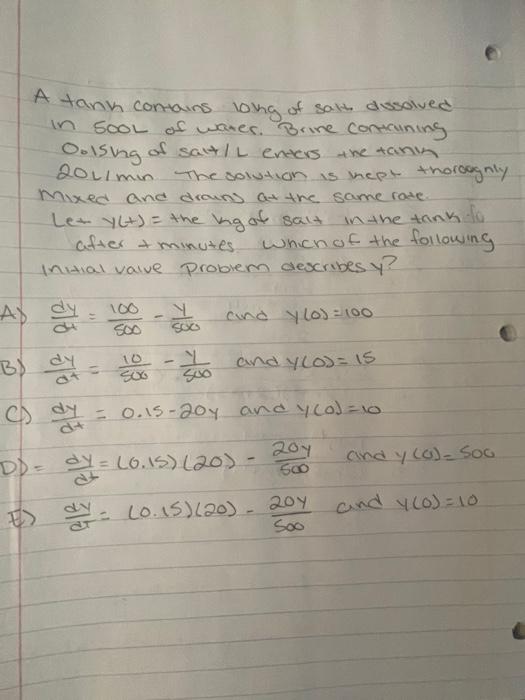 A tank contains 10kg of salt dissolved
in 500L of water. Brine containing
0.015kg of salt/L enters the tank
20L/min The solution is kept thoroughly
mixed and drains at the same rate.
Let y(t) = the kg of salt in the tank
after t minutes. Which of the following
initial value problem describes y?
A) dy/dt = 100/500 - y/500 and y(0)=100
B) dy/dt = 10/500 - y/500 and y(0)= 15
C) dy/dt = 0.15-20y and y(0)=10
D) = dy/dt = (0.15)(20) - 20y/500 and y(0)= 500
E) dy/dt = (0.15)(20) - 20y/500 and y(0)=10